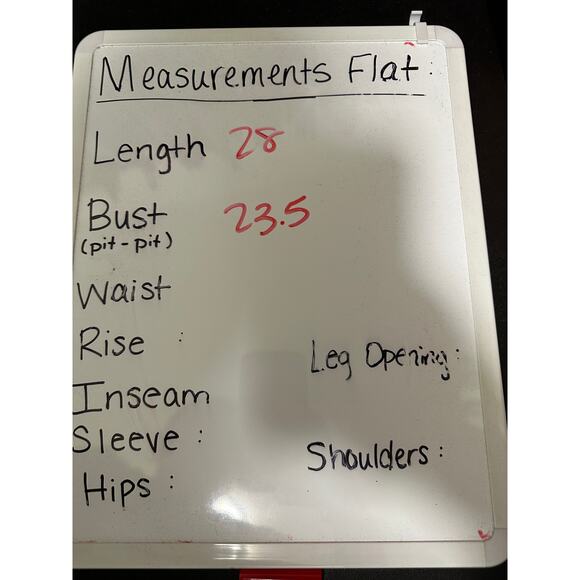 Measurements Flat:
Length 28
Bust 23.5
(pit-pit)
Waist
Rise :
Leg Opening:
Inseam
Sleeve :
Shoulders:
Hips :